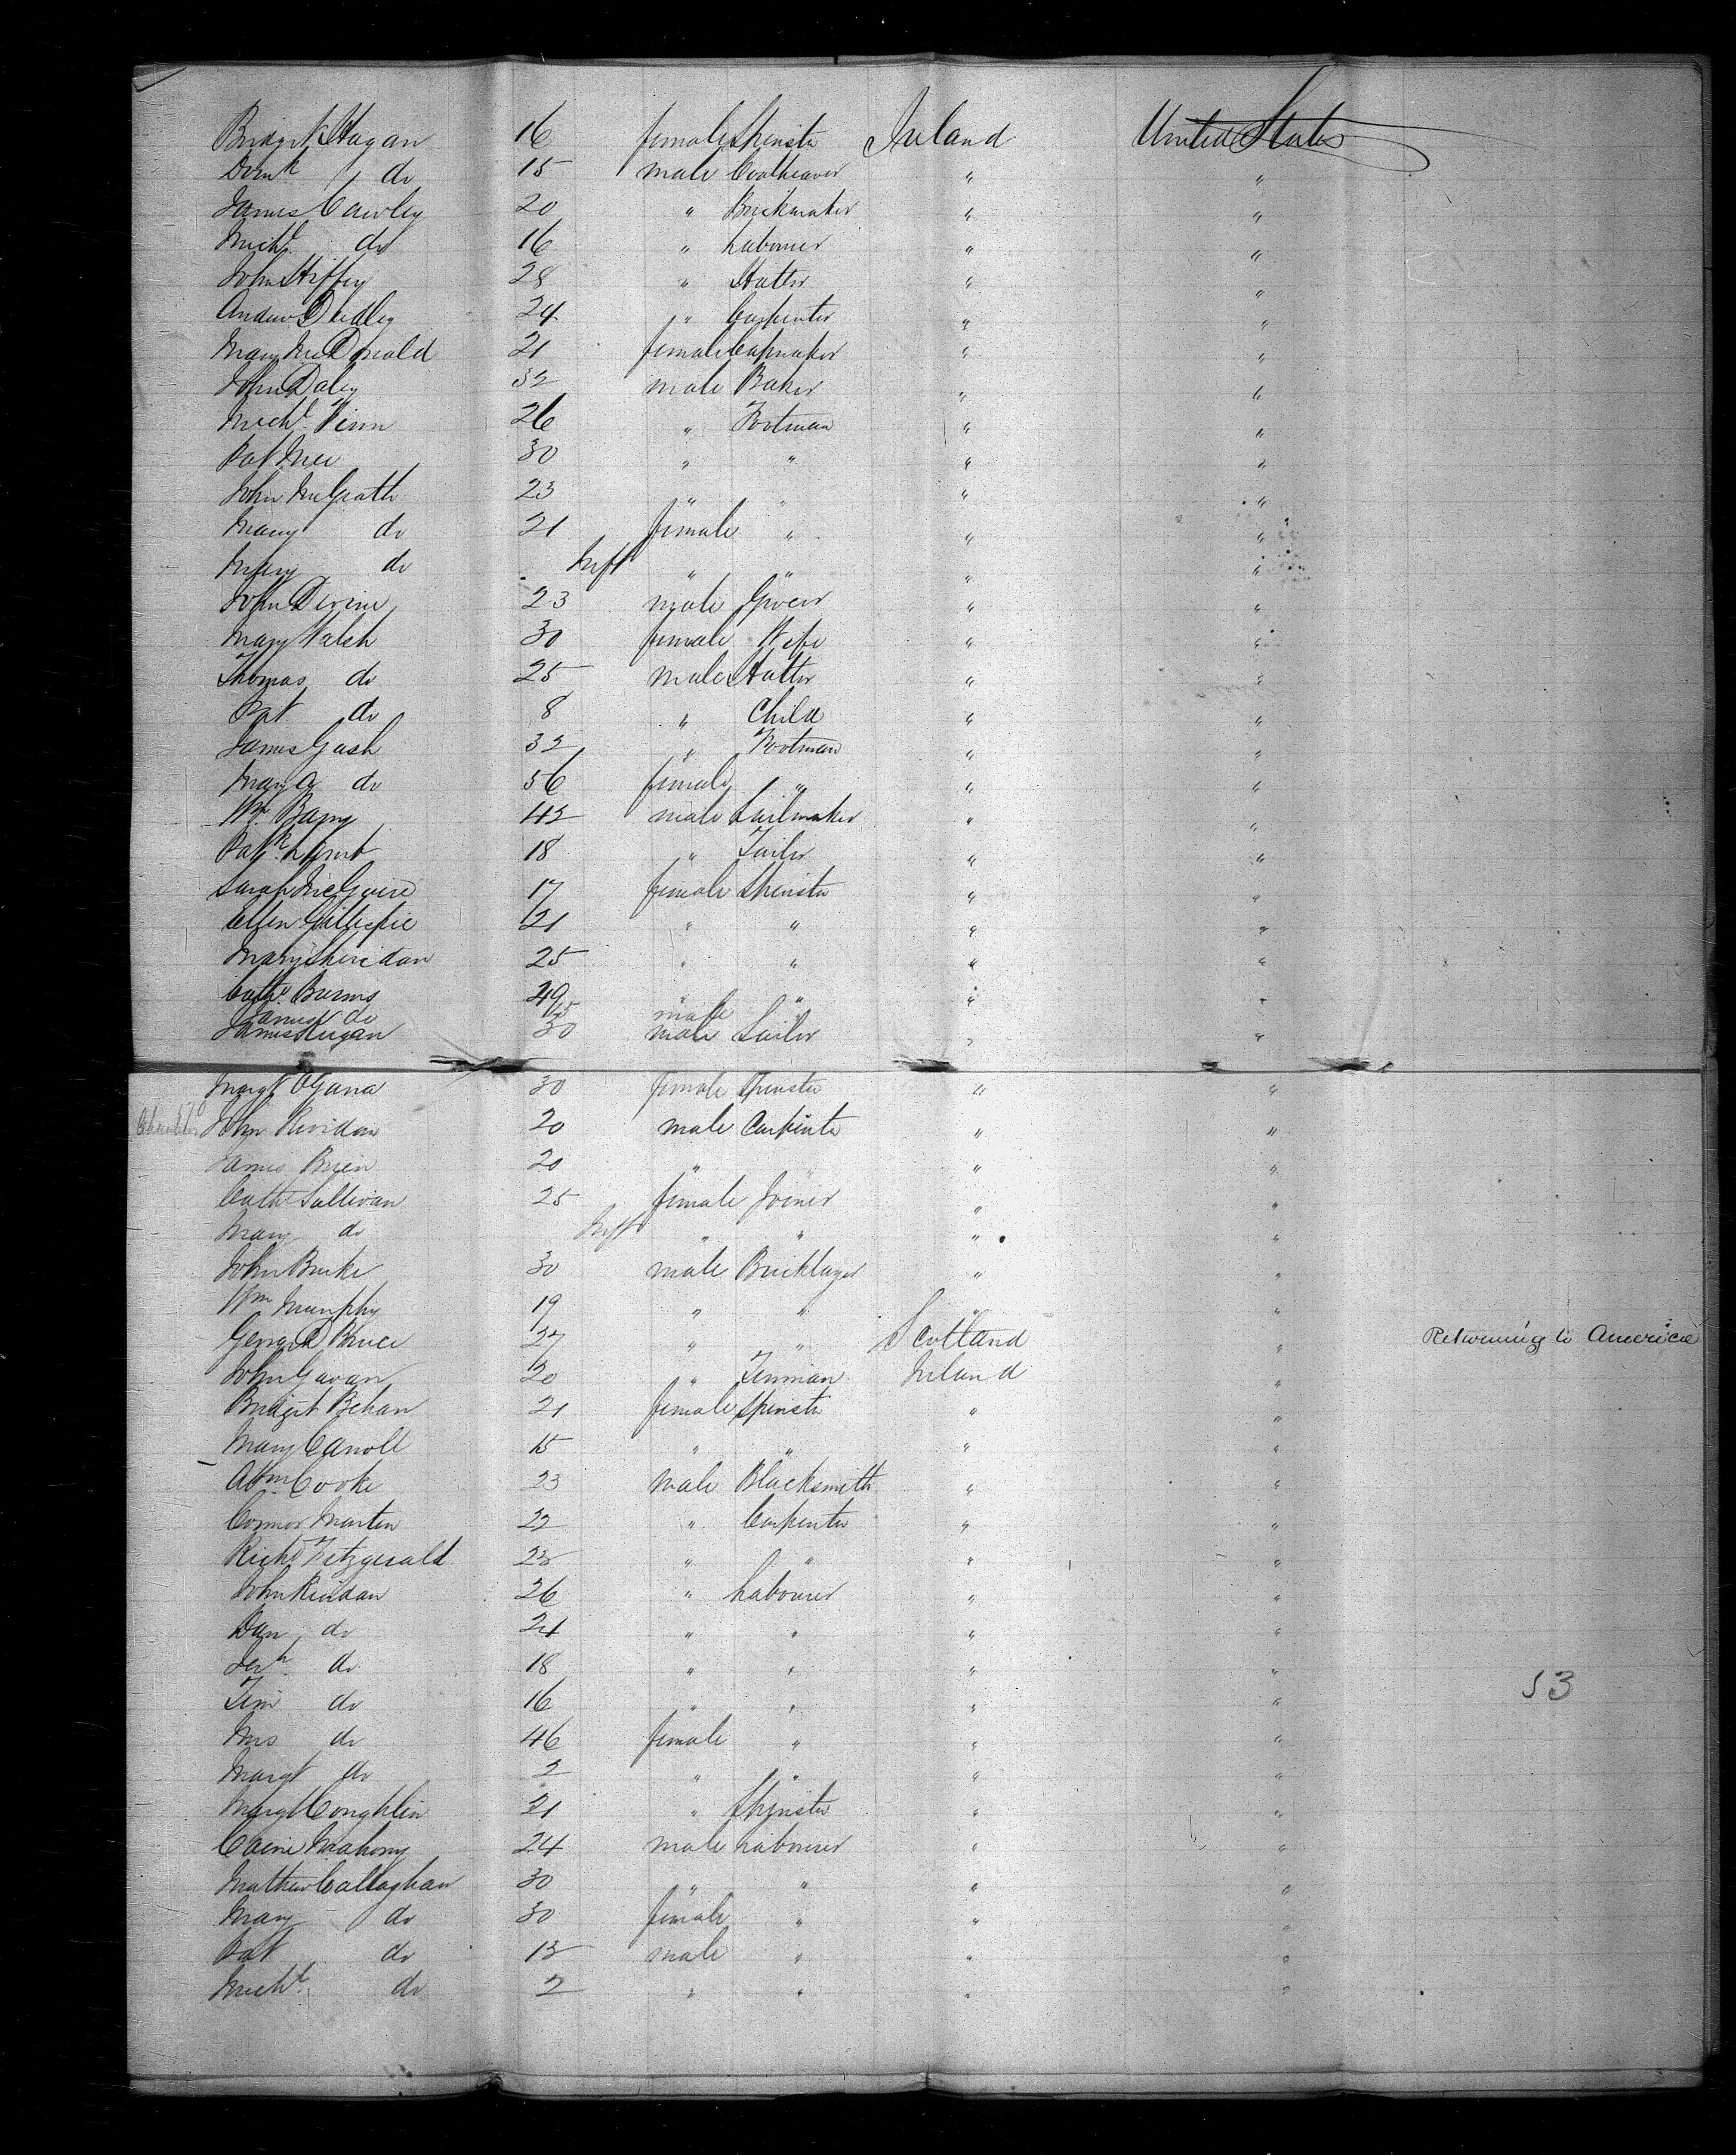 Bridget Hagan 16 female Spinster Ireland United States
Domk do 15 male Coalheaver " "
James Cawley 20 " Brickmaker " "
Michl do 16 " Labourer " "
John Hiffey 28 " Hatter " "
Andrew Dudley 24 " Carpenter " "
Mary McDonald 21 female Capmaker " "
John Daley 32 male Baker " "
Michl Finn 26 " Footman " "
Pat Mee 30 " " " "
John McGrath 23 " " " "
Mary do 21 female " " "
Mary do Inft " " " "
John Devine 23 male Grocer " "
Mary Walsh 30 female Wife " "
Thomas do 25 male Hatter " "
Pat do 8 " Child " "
James Gash 32 " Footman " "
Mary A do 56 female " " "
Wm Barry 42 male Sailmaker " "
Patk Lamb 18 " Tailor " "
Sarah McGuire 17 female Spinster " "
Ellen Gillespie 21 " " " "
Mary Sheridan 25 " " " "
Cathe Burns 49 " " " "
James do 15 male
James Keegan 30 male Sailor " "
Margt OGara 30 female Spinster " "
John Rividan 20 male Carpenter " "
James Brien 20 " " " "
Cath Sullivan 25 female Joiner " "
Mary do Inft " " " "
John Burke 30 male Bricklayer " "
Wm Murphy 19 " " " "
George D Bruce 27 " " Scotland " Returning to America
John Gavan 20 " Tinman Ireland "
Bridget Behan 21 female Spinster " "
Mary Carroll 15 " " " "
Abm Cooke 23 male Blacksmith " "
Connor Martin 22 " Carpenter " "
Richd Fitzgerald 23 " " " "
John Reirdan 26 " Labourer " "
Dan do 24 " " " "
Jerh do 18 " " " "
Tim do 16 " " " " 53
Mrs do 46 female " " "
Margt do 2 " " " "
Margt Coughlin 21 " Spinster " "
Mahony 24 male Labourer " "
Mathew Callaghan 30 " " " "
Mary do 30 female " " "
Pat do 13 male " " "
Michl do 2 " " " "